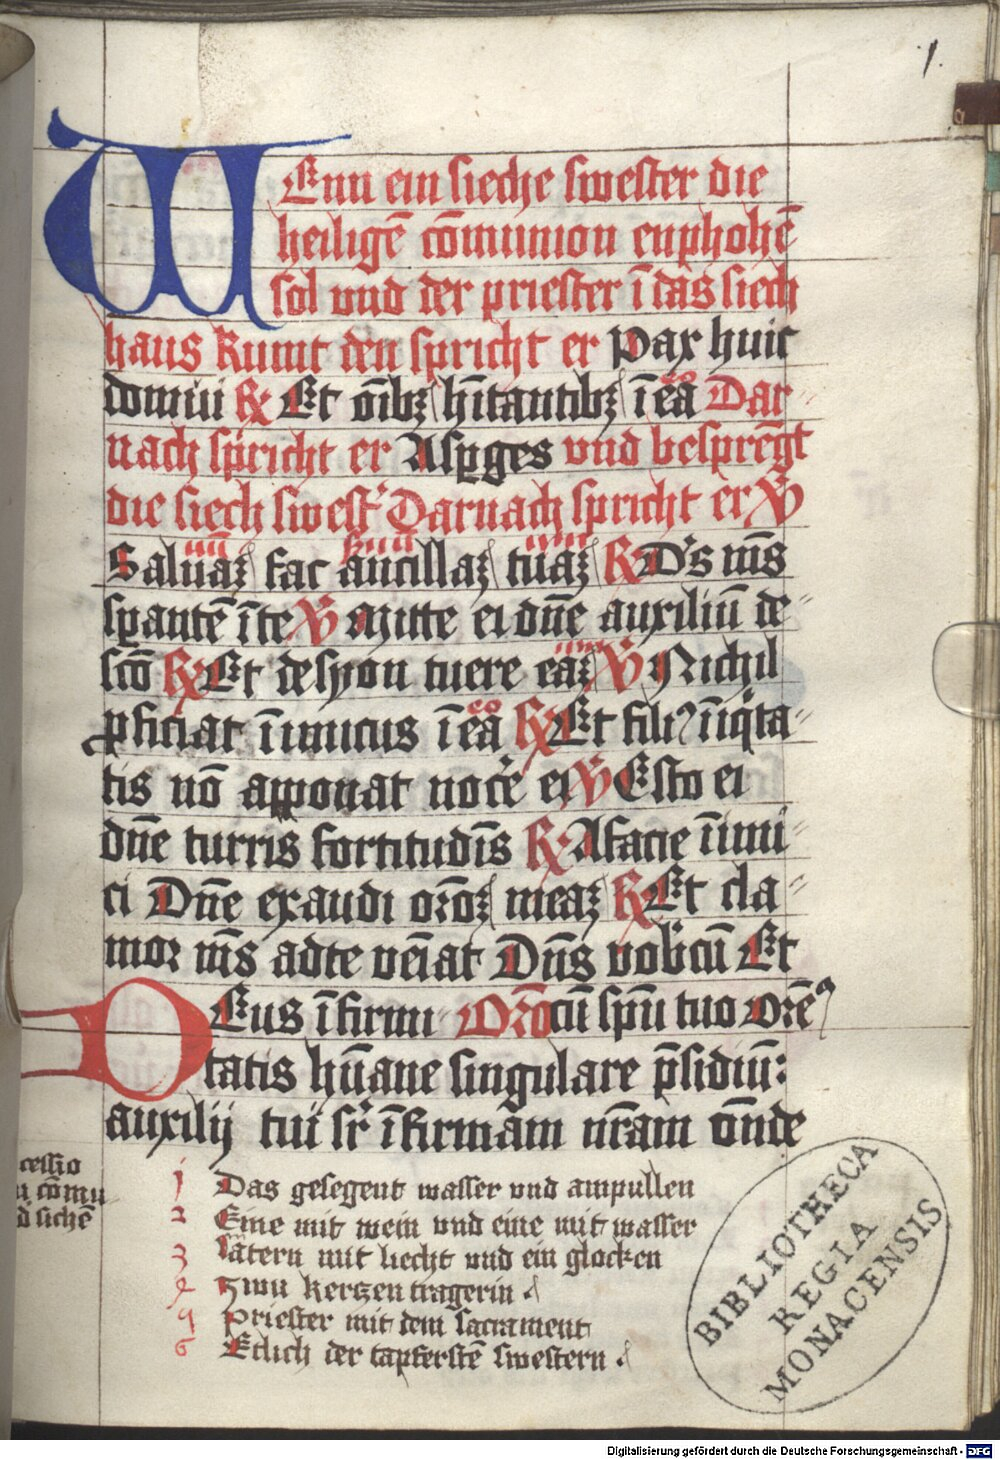 1.
WEnn ein sieche swester die
heiligē cōmunion enphohē
sol vnd der priester ī das siech
haus kumt den spricht er Pax huic
domui ℟ Et oībꝫ hītantibꝫ ī ea eo Dar-
nach spricht er Aspges vnd besprēgt
die siech swest' Darnach spricht er ℣
Saluaꝫ fac ancillaꝫ tuaꝫ ℟ Ds ms
spantē ī te ℣ Mitte ei dn̄e auxiliū de
scō ℟ Et de syon tuere eaꝫ ℣ Nichil
ꝓficiat īimicus ī ea eo ℟ Et fili9 īiq̄ta-
tis nō apponat nocē ei ℣ Esto ei
dn̄e turris fortitudīs ℟ A facie īimi
ci Dn̄e exaudi orōꝫ meaꝫ ℟ Et cla-
mor ms ad te veīat Dn̄s vobcū Et
DEus īfirmi Orō cū spū tuo Orē9
tatis hūane singulare p̄sidiū:
auxilij tui sr̄ īfirmam nr̄am ōnde
cessio
cōmu
d sichē
1 Das gesegent wasser vnd ampullen
2 Eine mit wein vnd eine mit wasser
3 latern mit liecht vnd ein glocken
4 Zwu kerczen tragerin
5 Priester mit dem sacrament
6 Etlich der tapferstē swestern
BIBLIOTHECA
REGIA
MONACENSIS
Digitalisierung gefördert durch die Deutsche Forschungsgemeinschaft - DFG